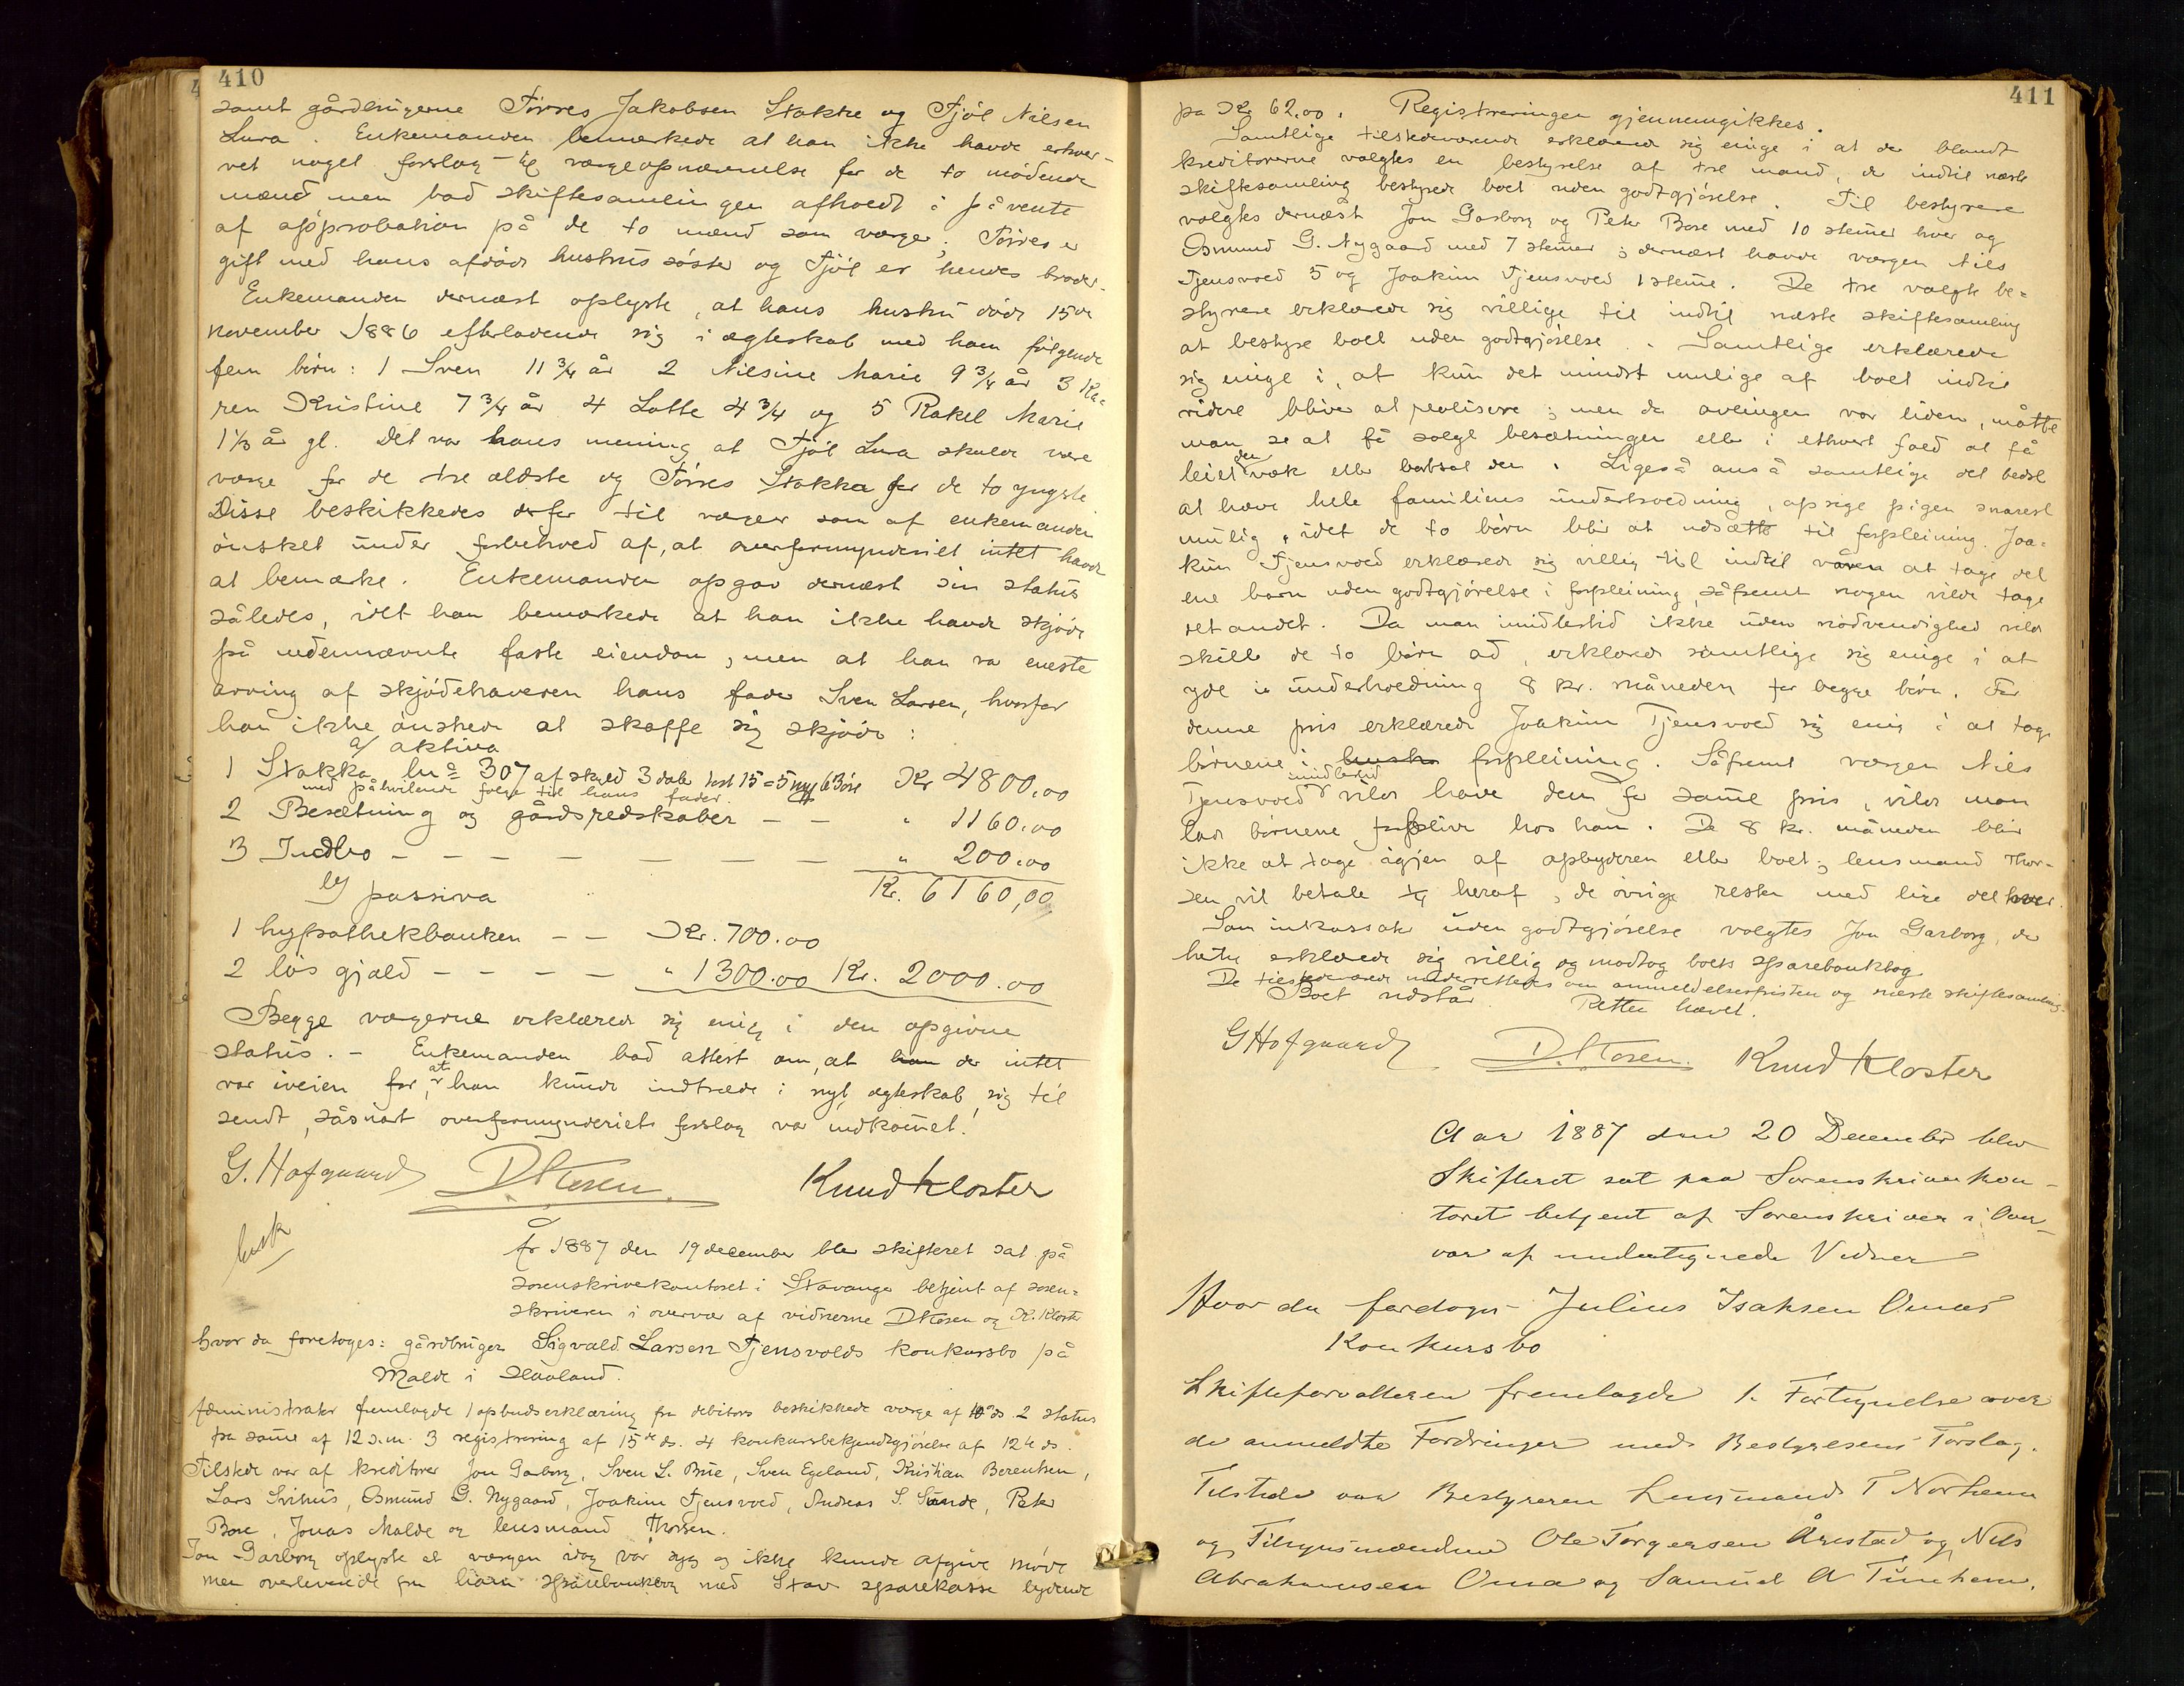 410
samt gårdbrugerne Tørres Jakobsen Stakke og Tjøl Nilsen
Lura. Enkemanden bemærkede at han ikke havde erhver-
vet noget forslag til værgeopnævnelse for de to mødende
mænd men bad skiftesamlingen afholdt i påvente
af approbation på de to mænd som værger; Tørres er
gift med hans afdøde hustrus søster og Tjøl er hendes broder.
Enkemanden dernæst oplyste, at hans hustru døde 15de
november 1886 efterladende sig i ægteskab med ham følgende
fem børn: 1 Sven 11 3/4 år 2 Nilsine Marie 9 3/4 år 3 Ka-
ren Kristine 7 3/4 år 4 Lotte 4 3/4 og 5 Rakel Marie
1 1/3 år gl. Det var hans mening at Tjøl Lura skulde være
værge for de tre ældste og Tørres Stakke for de to yngste
Disse beskikkedes derfor til værger som af enkemanden
ønsket under forbehold af, at overformynderiet intet havde
at bemærke. Enkemanden opgav dernæst sin status
således, idet han bemærkede at han ikke havde skjøde
på nedennævnte faste eiendom, men at han var eneste
arving af skjødehaveren hans fader Sven Larsen, hvorfor
han ikke ønskede at skaffe sig skjøde:
a/ aktiva
1 Stakka lno 307 af skyld 3 daler 1 ort 15 = 5 mk 63 øre Kr 4800.00
med påhvilende folge til hans fader.
2 Besætning og gårdsredskaber — — " 1160.00
3 Indbo — — — — — — — " 200.00
Kr. 6160,00
b/ passiva
1 hypothekbanken — — Kr. 700.00
2 løs gjæld — — — — " 1300.00 Kr. 2000.00
Begge værgerne erklærede sig enig i den opgivne
status. — Enkemanden bad attest om, at han der intet
var iveien for, at han kunde indtræde i nyt ægteskab, sig til
sendt, såsnart overformynderiets forslag var indkommet.
G. Hofgaard D. Stosen. Knud Kloster
År 1887 den 19 december blev skifteret sat på
sorenskriverkontoret i Stavanger betjent af soren-
skriveren i overvær af vidnerne D Stosen og K. Kloster
hvor da foretoges: gårdbruger Sigvald Larsen Tjensvolds konkursbo på
Malde i Håland.
Administrator fremlagde 1 opbudserklæring fra debitors beskikkede værge af 10 ds. 2 status
fra samme af 12 s.m. 3 registrering af 15de ds. 4 konkursbekjendtgjørelse af 12te ds.
Tilstede var af kreditorer Jon Garborg, Sven L. Bue, Sven Egeland, Kristian Berentsen,
Lars Svihus, Osmund G. Nygaard, Joakim Tjensvold, Andreas S. Sunde, Peter
Bore, Jonas Malde og lensmand Thorsen.
Jon Garborg oplyste at værgen idag var syg og ikke kunde afgive møde
men overleverede fra ham sparebankbog med Stav sparekasse lydende
411
på Kr 62.00. Registreringen gjennemgikkes.
Samtlige tilstedeværende erklærede sig enige i at der blandt
kreditorerne valgtes en bestyrelse af tre mand, der indtil næste
skiftesamling bestyrede boet uden godtgjørelse. Til bestyrere
valgtes dernæst Jon Garborg og Peter Bore med 10 stemer hver og
Osmund G. Nygaard med 7 stemer; dernæst havde værgen Nils
Tjensvold 5 og Joakim Tjensvold 1 steme. De tre valgte be-
styrere erklærede sig villige til indtil næste skiftesamling
at bestyre boet uden godtgjørelse. Samtlige erklærede
sig enige i, at kun det mindst mulige af boet indtil
videre bliver at realisere; men da avlingen var liden, måtte
man se at få solgt besætningen eller i ethvert fald at få
leiet den væk eller bortsat den. Ligeså anså samtlige det bedst
at hæve hele familiens underholdning, opsige pigen snarest
mulig, idet de to børn blir at udsætte til forpleining. Joa-
kim Tjensvold erklærede sig villig til indtil våren at tage det
ene barn uden godtgjørelse i forpleining, såfremt nogen vilde tage
det andet. Da man imidlertid ikke uden nødvendighed vilde
skille de to børn ad, erklærede samtlige sig enige i at
yde i underholdning 8 kr. måneden for begge børn. For
denne pris erklærede Joakim Tjensvold sig enig i at tage
børnene i forpleining. Såfremt værgen Nils
Tjensvold imidlertid vilde have dem for same pris, vilde man
lade børnene forblive hos ham. De 8 kr. måneden blir
ikke at tage igjen af opbyderen eller boet; lensmand Thor-
sen vil betale 1/4 heraf, de øvrige resten med lige del hver.
Som inkassator uden godtgjørelse valgtes Jon Garborg, der
hertil erklærede sig villig og modtog boets sparebankbog
De tilstedeværende underrettedes om anmeldelsesfristen og næste skiftesamling.
Boet udstår. Retten hævet.
G Hofgaard D. Stosen. Knud Kloster
Aar 1887 den 20 December blev
Skifteret sat paa Sorenskriverkon-
toret betjent af Sorenskriver i Over-
vær af undertegnede Vidner
Hvor da foretoges Julius Isaksen Omas
Konkursbo
Skifteforvalteren fremlagde 1. Fortegnelse over
de anmeldte Fordringer med Bestyrelsens Forslag.
Tilstede var Bestyreren Lensmand T Norheim
og Tilsynsmændene Ole Torgersen Årestad og Nils
Abrahamsen Oma og Samuel A Tunheim.